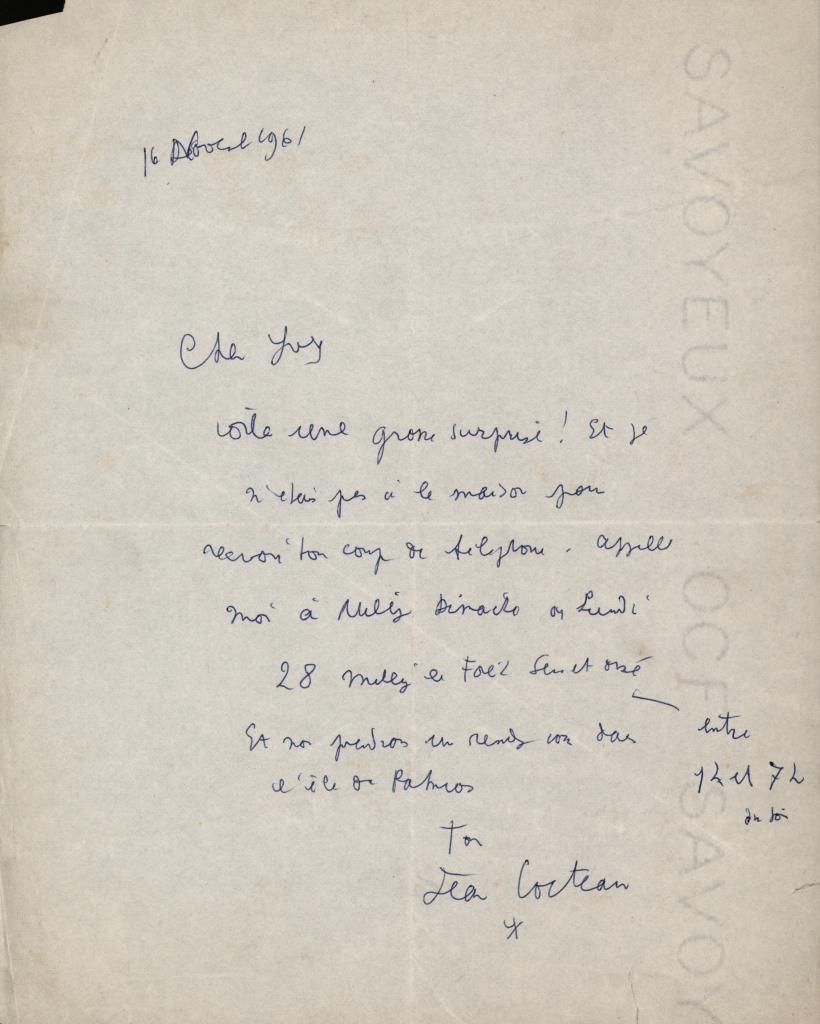 16 1961
Cher Yves
voilà une grosse surprise ! Et je
n'étais pas à la maison pour
recevoir ton coup de téléphone . appelle
moi à Milly Dimanche ou Lundi
28 Milly la Forêt Seine et Oise
entre
Et nos prendrons un rendez vous dans
1h et 7h
l'île de Patmos
du soir
Ton
Jean Cocteau
SAVOYEUX OCF SAVOY